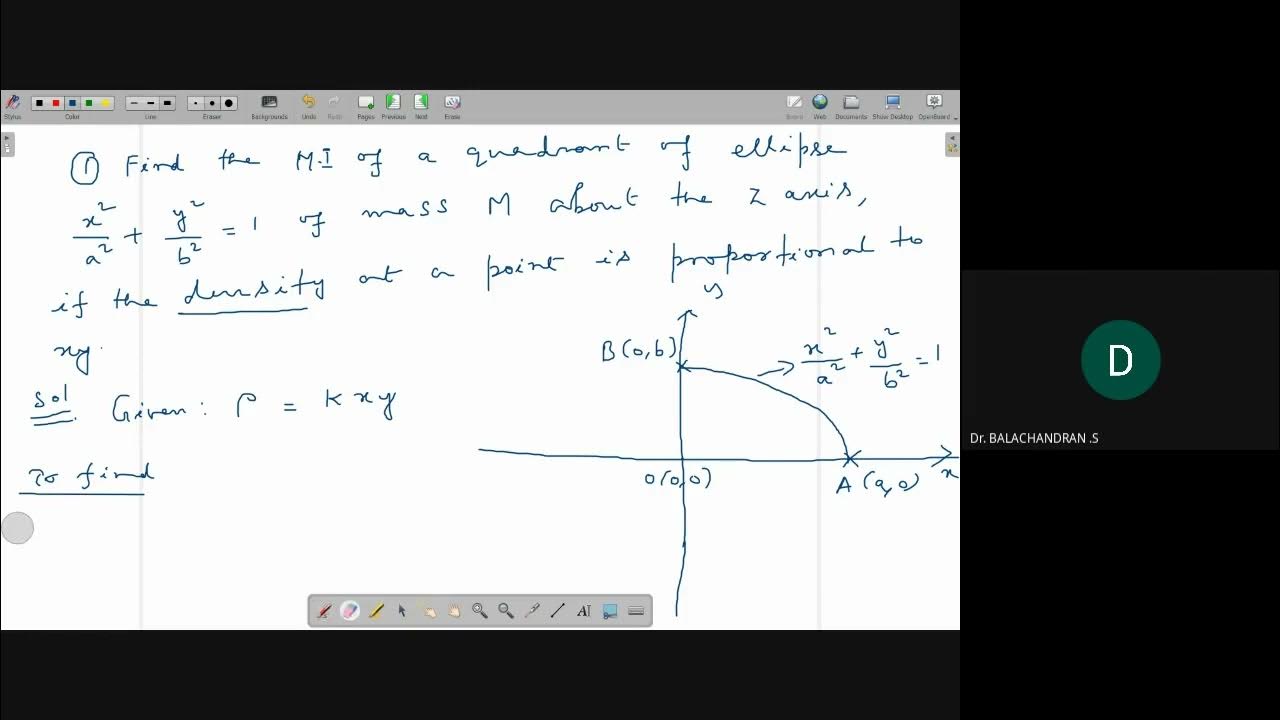 Stylus
Color
Line
Eraser
Backgrounds
Undo
Redo
Pages
Previous
Next
Erase
Board
Web
Documents
Show Desktop
OpenBoard
① Find the M.I of a quadrant of ellipse
x²/a² + y²/b² = 1 of mass M about the Z axis,
if the density at a point is proportional to
xy.
Sol. Given: ρ = K xy
To find
y
B(0,b)
x²/a² + y²/b² = 1
O(0,0)
A (a,0)
x
AI
D
Dr. BALACHANDRAN .S